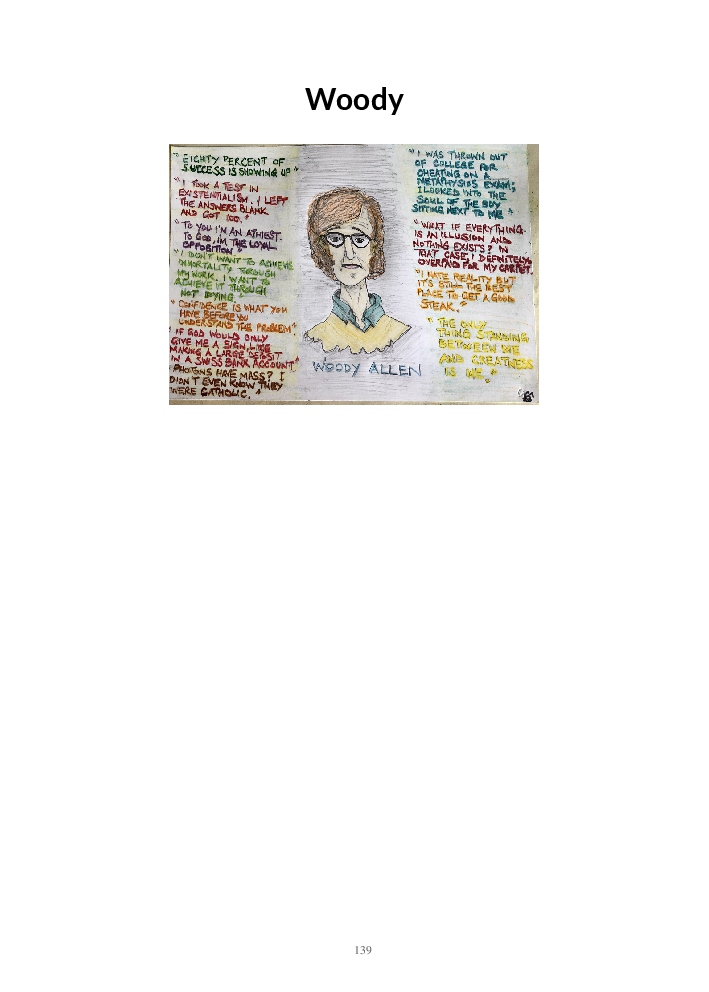 Woody
"EIGHTY PERCENT OF
SUCCESS IS SHOWING UP"
"I TOOK A TEST IN
EXISTENTIALISM. I LEFT
THE ANSWERS BLANK
AND GOT 100."
"TO YOU I'M AN ATHIEST.
TO GOD, I'M THE LOYAL
OPPOSITION"
"I DON'T WANT TO ACHIEVE
IMMORTALITY THROUGH
MY WORK. I WANT TO
ACHIEVE IT THROUGH
NOT DYING."
"CONFIDENCE IS WHAT YOU
HAVE BEFORE YOU
UNDERSTAND THE PROBLEM"
"IF GOD WOULD ONLY
GIVE ME A SIGN, LIKE
MAKING A LARGE DEPOSIT
IN A SWISS BANK ACCOUNT"
"PHOTONS HAVE MASS? I
DIDN'T EVEN KNOW THEY
WERE CATHOLIC."
WOODY ALLEN
"I WAS THROWN OUT
OF COLLEGE FOR
CHEATING ON A
METAPHYSICS EXAM;
I LOOKED INTO THE
SOUL OF THE BOY
SITTING NEXT TO ME"
"WHAT IF EVERYTHING
IS AN ILLUSION AND
NOTHING EXISTS? IN
THAT CASE, I DEFINITELY
OVERPAID FOR MY CARPET.
"I HATE REALITY BUT
IT'S STILL THE BEST
PLACE TO GET A GOOD
STEAK."
"THE ONLY
THING STANDING
BETWEEN ME
AND GREATNESS
IS ME."
139